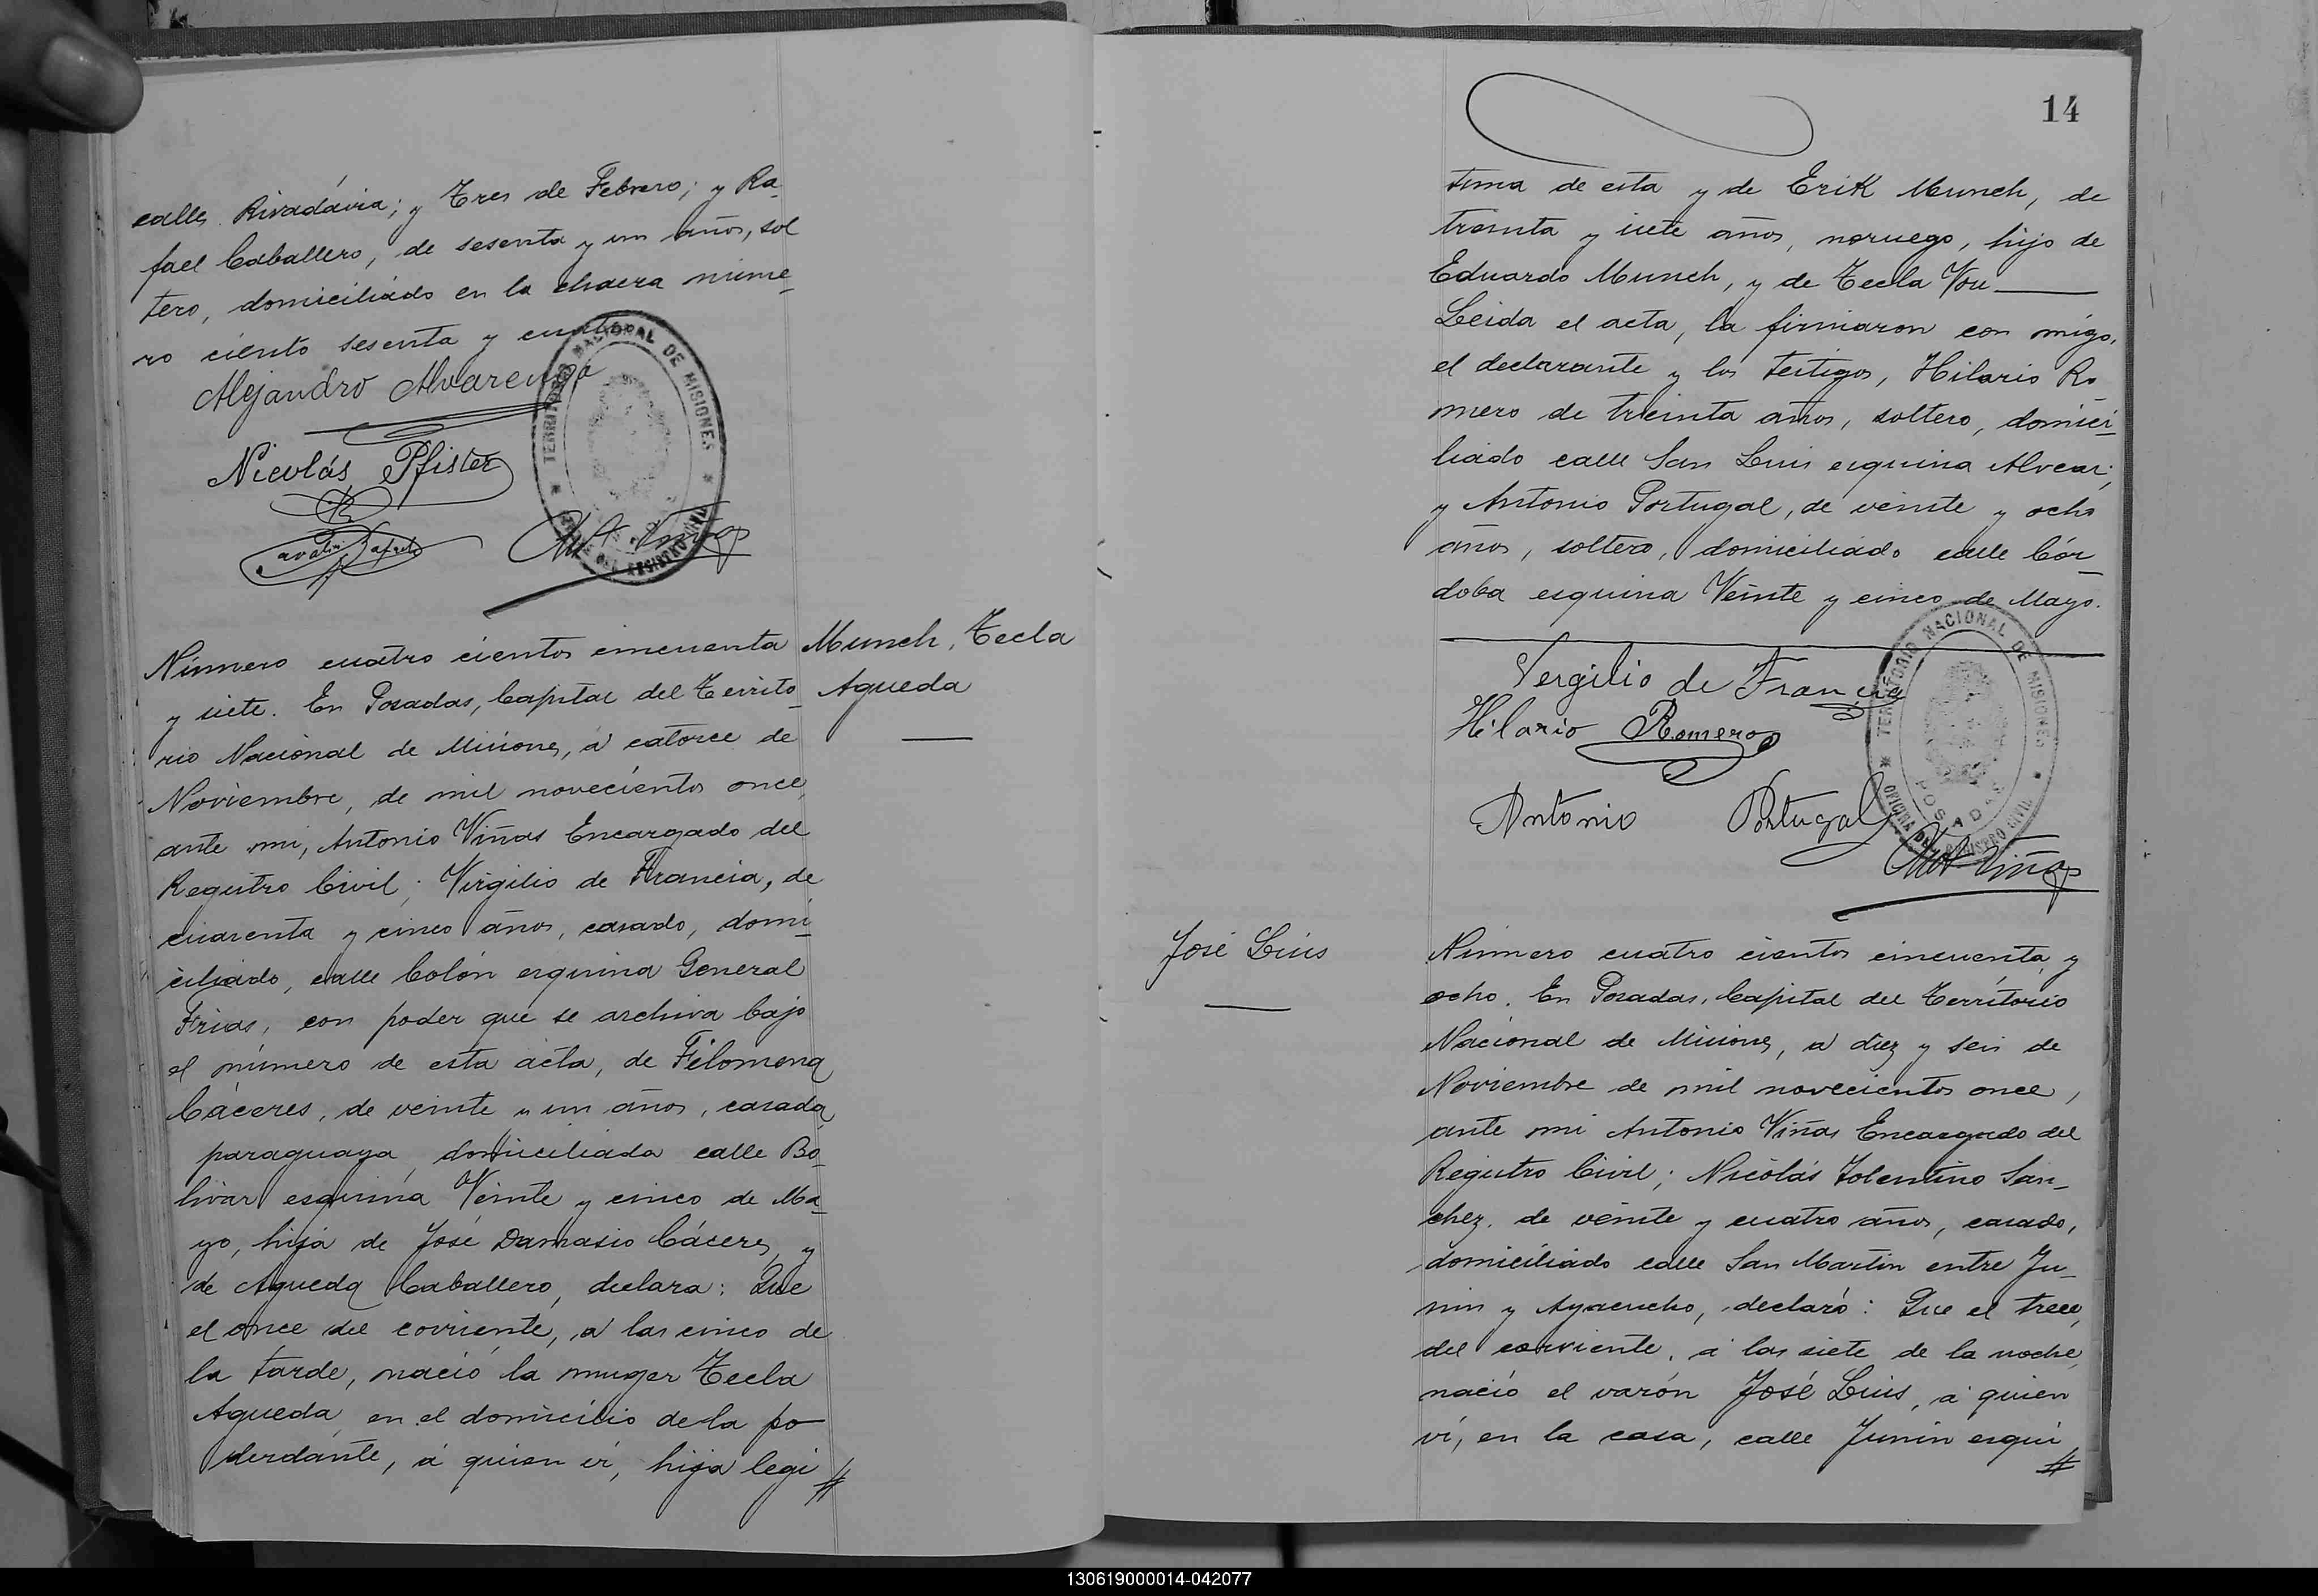 calles Rivadávia; y Tres de Febrero; y Ra
fael Caballero, de sesenta y un años, sol
tero, domiciliado en la chacra núme
ro ciento sesenta y cuatro
Alejandro Alvarenga
Nicolás Pfister
Ant Viñas
TERRITORIO NACIONAL DE MISIONES
Número cuatro cientos cincuenta
y siete. En Posadas, Capital del Territo
rio Nacional de Misiones, á catorce de
Noviembre, de mil novecientos once,
ante mi, Antonio Viñas Encargado del
Registro Civil; Virgilio de Francia, de
cuarenta y cinco años, casado, domi
ciliado, calle Colón esquina General
Frias, con poder que se archiva bajo
el número de esta acta, de Filomena
Cáceres, de veinte y un años, casada
paraguaya, domiciliada calle Bo
livar esquina Veinte y cinco de Ma
yo, hija de José Damasio Cáceres, y
de Agueda Caballero, declara: Que
el once del corriente, á las cinco de
la tarde, nació la muger Tecla
Agueda, en el domicilio de la po
derdante, á quien ví, hija legi
Munch, Tecla
Agueda
14
tima de esta y de Erik Munch, de
treinta y siete años, noruego, hijo de
Eduardo Munch, y de Tecla Vou
Leida el acta, la firmaron con migo,
el declarante y los testigos, Hilario Ro
mero de treinta años, soltero, domici
liado calle San Luis esquina Alvear;
y Antonio Portugal, de veinte y ocho
años, soltero, domiciliado calle Cór
doba esquina Veinte y cinco de Mayo.
Vergilio de Francia
Hilario Romero
Antonio Portugal
Ant Viñas
TERRITORIO NACIONAL DE MISIONES
OFICINA DEL REGISTRO CIVIL
POSADAS
José Luis
Número cuatro cientos cincuenta y
ocho. En Posadas, Capital del Territorio
Nacional de Misiones, á diez y seis de
Noviembre de mil novecientos once,
ante mi Antonio Viñas Encargado del
Registro Civil; Nicolás Tolentino San
chez, de veinte y cuatro años, casado,
domiciliado calle San Martin entre Ju
nin y Ayacucho, declaró: Que el trece,
del corriente, á las siete de la noche,
nació el varón José Luis, á quien
ví, en la casa, calle Junin esqui
130619000014-042077